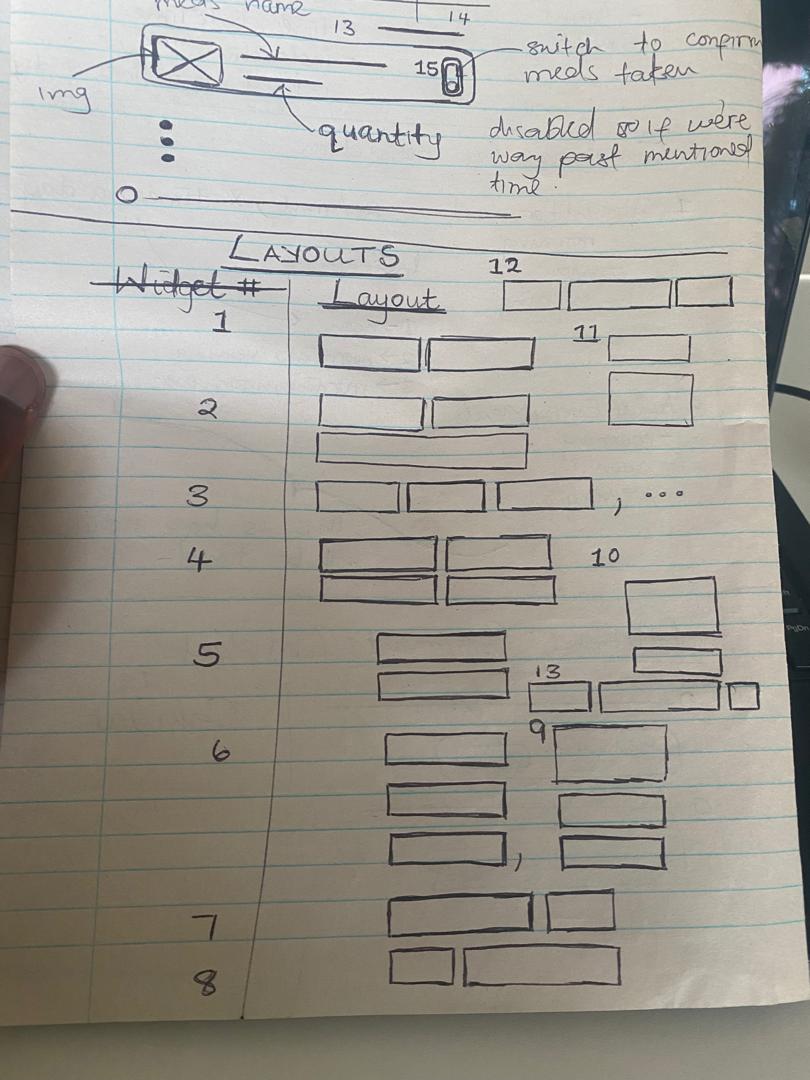 meds name
13
14
img
15
switch to confirm
meds taken
quantity
disabled so if we're
way past mentioned
time.
LAYOUTS
Widget #
Layout
12
1
11
2
3 , ...
4
10
5
13
6
9
,
7
8